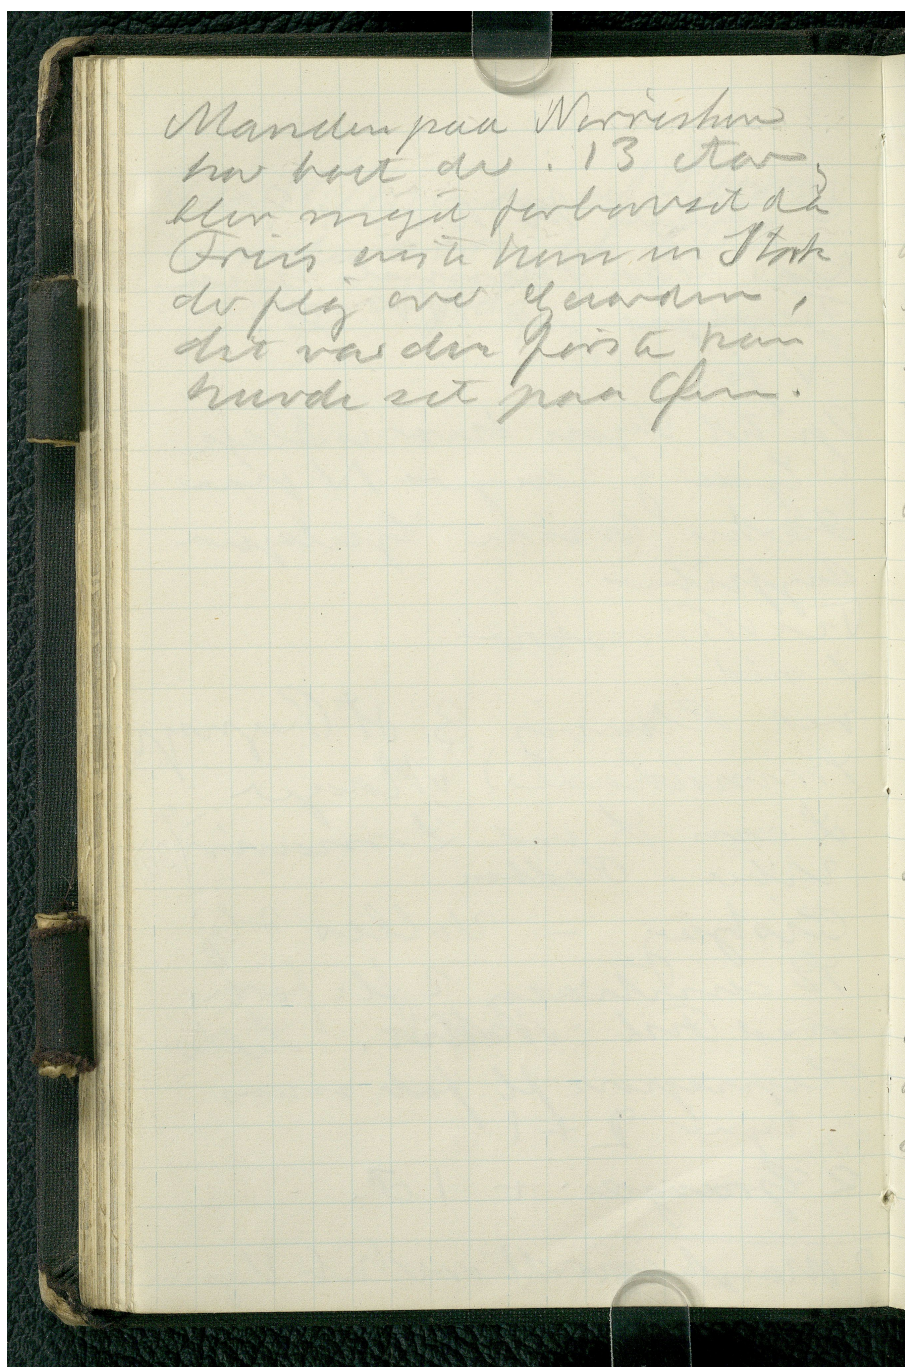 Manden paa Nørreskov
har boet der. 13 Aar,
blev meget forbavset da
Friis viste ham en Stork
der fløj over Gaarden,
det var den første han
havde set paa Øen.